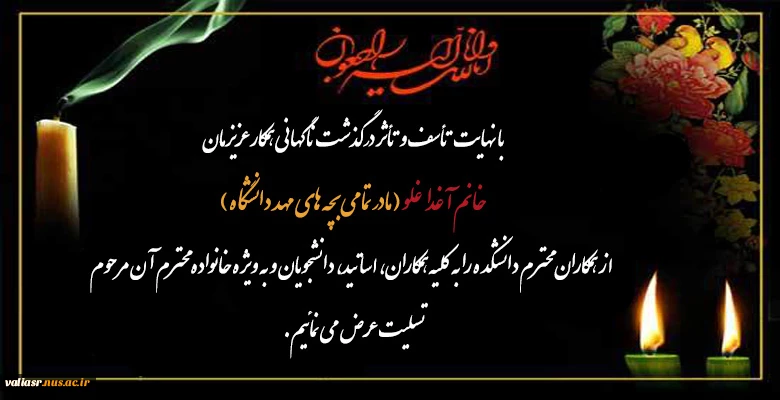 انا لله و انا الیه راجعون
با نهایت تأسف و تأثر درگذشت ناگهانی همکار عزیزمان
خانم آغدا غلو ( مادر تمامی بچه های مهد دانشگاه )
از همکاران محترم دانشکده را به کلیه همکاران، اساتید، دانشجویان و به ویژه خانواده محترم آن مرحوم
تسلیت عرض می نمائیم .
valiasr.nus.ac.ir